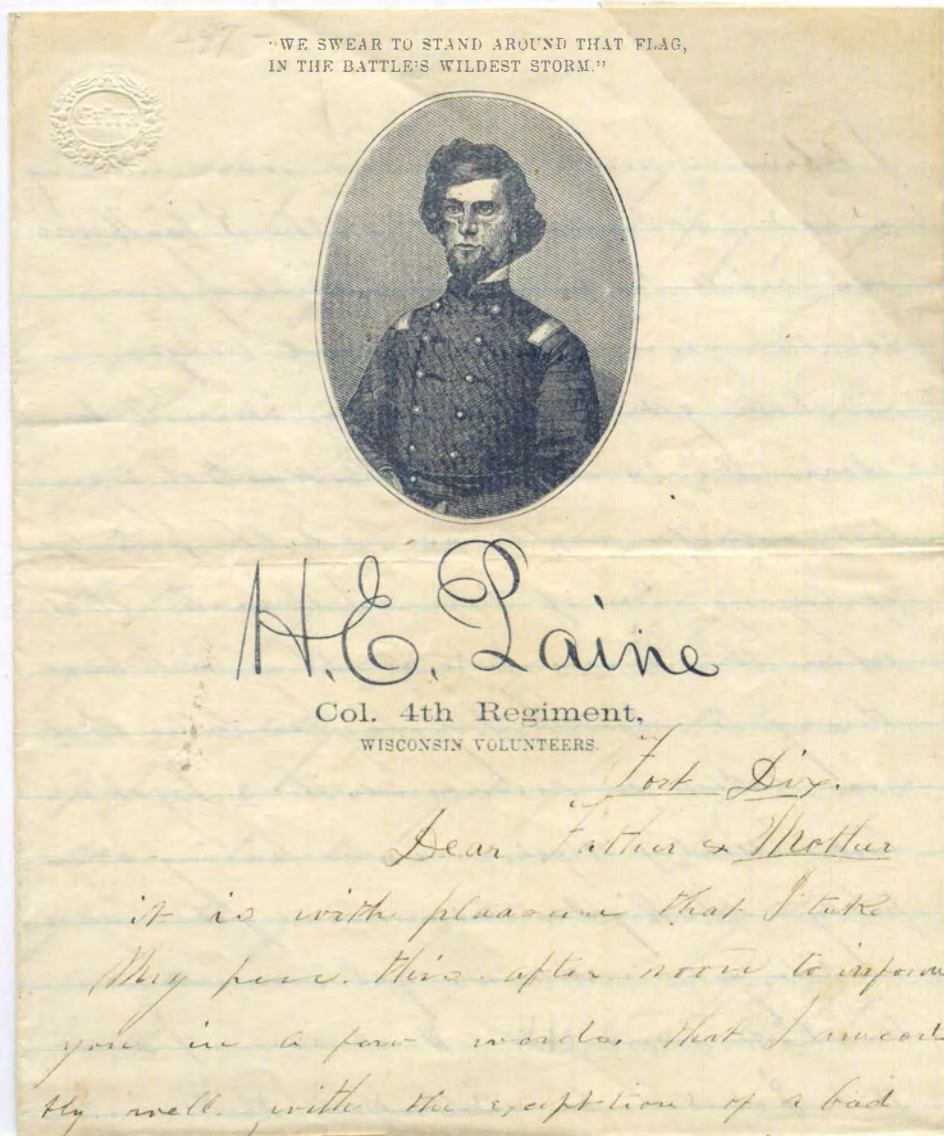 "WE SWEAR TO STAND AROUND THAT FLAG,
IN THE BATTLE'S WILDEST STORM."
H.E. Paine
Col. 4th Regiment,
WISCONSIN VOLUNTEERS.
Fort Dix.
Dear Father & Mother
it is with pleasure that I take
My pen. this after noon to inform
you in a few words. that I
tly well. with the exception of a bad